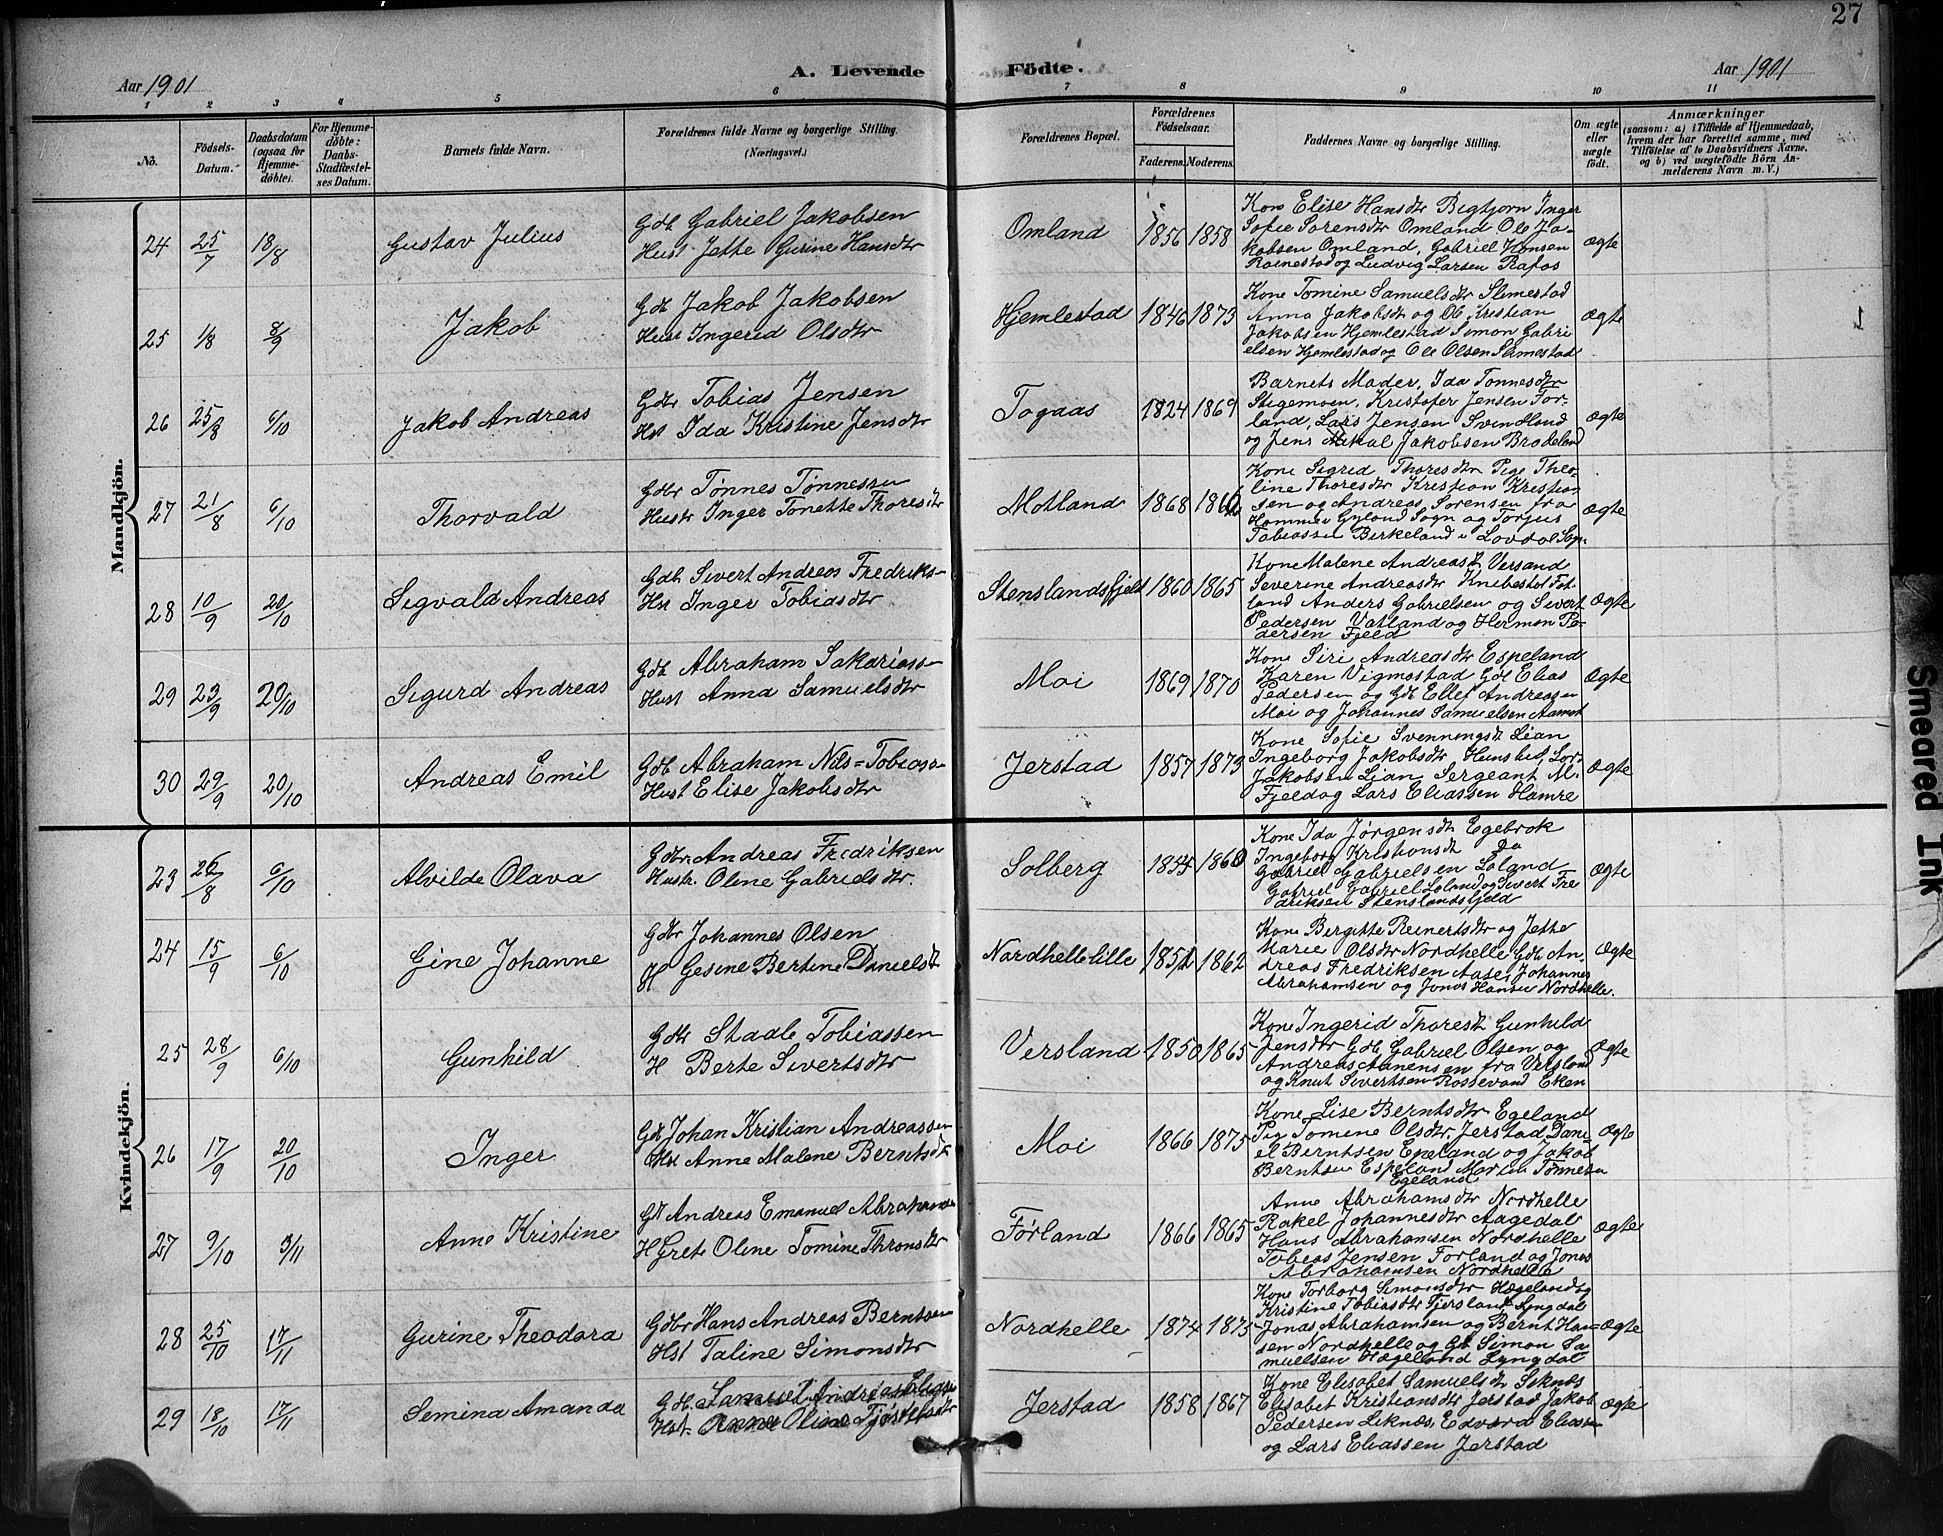 27
Aar 1901 A. Levende Födte. Aar 1901
1 2 3 4 5 6 7 8 9 10 11
No.
Födsels-Datum.
Daabsdatum (ogsaa for Hjemme-döbte).
For Hjemme-döbte: Daabs-Stadfæstel-ses Datum.
Barnets fulde Navn.
Forældrenes fulde Navne og borgerlige Stilling.
(Næringsvei.)
Forældrenes Bopæl.
Forældrenes Födselsaar.
Faderens. Moderens.
Faddernes Navne og borgerlige Stilling.
Om ægte eller uægte födt.
Anmærkninger
(saasom: a) i Tilfælde af Hjemmedaab,
hvem der har forrettet samme, med
Tilföielse af to Daabsvidners Navne,
og b) ved uægtefödte Börn An-
melderens Navn m. V.)
Mandkjön.
24 25/7 18/8 Gustav Julius
Gdb Gabriel Jakobsen
Hust Jette Gurine Hansdtr
Omland 1856 1858
Kone Elise Hansdtr Bigtjorn Inger
Sofie Sorensdtr Omland Ole Ja-
kobsen Omland, Gabriel Hansen
Ramestad og Ludvig Larsen Rafos
ægte
25 1/8 8/9 Jakob
Gdb Jakob Jakobsen
Hust Ingerid Olsdtr
Hjemlestad 1846 1873
Kone Tomine Samuelsdtr Slimestad
Anna Jakobsdtr og Ole Kristian
Jakobsen Hjemlestad Simon Gabri
elsen Hjemlestad og Ole Olsen Slimestad
ægte
26 25/8 6/10 Jakob Andreas
Gdbr Tobias Jensen
Hst Ida Kristine Jensdtr
Togaas 1824 1869
Barnets Moder, Ida Tonnesdtr
Stigemoen, Kristofer Jensen For-
land, Lars Jensen Svindland
og Jens Mikal Jakobsen Brodeland
ægte
27 21/8 6/10 Thorvald
Gdbr Tønnes Tønnessen
Hustr Inger Tonette Thoresdtr
Motland 1868
Kone Sigrid Thoresdtr Pige Theo-
line Thoresdtr Kristian Kristian
sen og Andreas Sorensen fra
Homme i Gyland Sogn og Torjus
Tobiassen Birkeland i Sogn
ægte
28 10/9 20/10 Sigvald Andreas
Gdb Sivert Andreas Fredriks-
Hst Inger Tobiasdtr
Stenslandsfjeld 1860 1865
Kone Malene Andreasdt Versand
Severine Andreasdtr Knibestol Fet-
land Anders Gabrielsen og Sivert
Pedersen Vatland og Herman Pe-
dersen Fjeld
ægte
29 23/9 20/10 Sigurd Andreas
Gdb Abraham Sakariass-
Hust Anna Samuelsdtr
Moi 1869 1870
Kone Siri Andreasdtr Espeland
Karen Vigmostad Gdb Elias
Pedersen og Gdb Ellef Andreassen
Moi og Johannes Samuelsen Aamot
Ægte
30 29/9 20/10 Andreas Emil
Gdb Abraham Nils=Tobiass-
Hust Elise Jakobsdtr
Jerstad 1857 1873
Kone Sofie Svenningsdt Lian
Ingeborg Jakobsdtr Hunsbed, Lars
Jakobsen Lian Sergeant M.
Fjeld og Lars Eliassen Hamre
Ægte
Kvindekjön.
23 26/8 6/10 Alvilde Olava
Gdbr Andreas Fredriksen
Hustr. Oline Gabrielsdtr.
Solberg 1854 1860
Kone Ida Jørgensdt Egebrok
Ingeborg Kristiansdt Do
Gabriel Gabrielsen Loland
Gabriel Gabriels Loland og Sivert Fre
driksen Stenslandsfjeld
Ægte
24 15/9 6/10 Gine Johanne
Gdbr Johannes Olsen
H Gesine Bertine Danielsdt
Nordhelle lille 1862
Kone Bergitte Reinertsdtr og Jette
Marie Olsdtr Nordhelle Gdb An-
dreas Fredriksen Aase, Johannes
Abrahamsen og Jonas Hansen Nordhelle.
Ægte
25 28/9 6/10 Gunhild
Gdbr Staale Tobiassen
H Berte Sivertsdtr
Versland 1850 1865
Kone Ingerid Thoresdt Gunhild
Jensdtr Gdb Gabriel Olsen og
Andreas Aanensen fra Versland
og Knut Sivertsen Rossevand Eken
Ægte
26 17/9 20/10 Inger
Gdb Johan Kristian Andreassen
Hst Anne Malene Berntsdt
Moi 1866 1875
Kone Lise Berntsdtr Egeland
Pig Tomine Olsdtr Jerstad Dani-
el Berntsen Egeland og Jakob
Berntsen Espeland Martin Tønnesen
Egeland
Ægte
27 9/10 3/11 Anne Kristine
Gdb Andreas Emanuel Abrahamsen
H Grete Oline Tomine Thronsdtr
Førland 1866 1865
Anne Abrahamsdtr Nordhelle
Rakel Johannesdtr Aagedal
Hans Abrahamsen Nordhelle
Tobias Jensen Førland og Jonas
Abrahamsen Nordhelle
Ægte
28 25/10 17/11 Gurine Theodora
Gdbr Hans Andreas Berntsen
Hst Taline Simonsdtr
Nordhelle 1874 1875
Kone Torborg Simonsdtr Hægeland og
Kristine Tobiasdtr Fjersland Lyngdal
Jonas Abrahamsen og Bernt Han-
sen Nordhelle og Gb Simon Sa-
muelsen Hægeland Lyngdal
Ægte
29 18/10 17/11 Semina Amanda
Gdb Samuel Andreas Eliass
Hst. Anne Oline Tjøstelsdtr
Jerstad 1858 1867
Kone Elisabet Samuelsdtr Liknæs
Elisabet Kristiansdtr Jerstad Jakob
Pedersen Liknæs, Edvard Eliassen
og Lars Eliassen Jerstad
Ægte
Smeared Ink